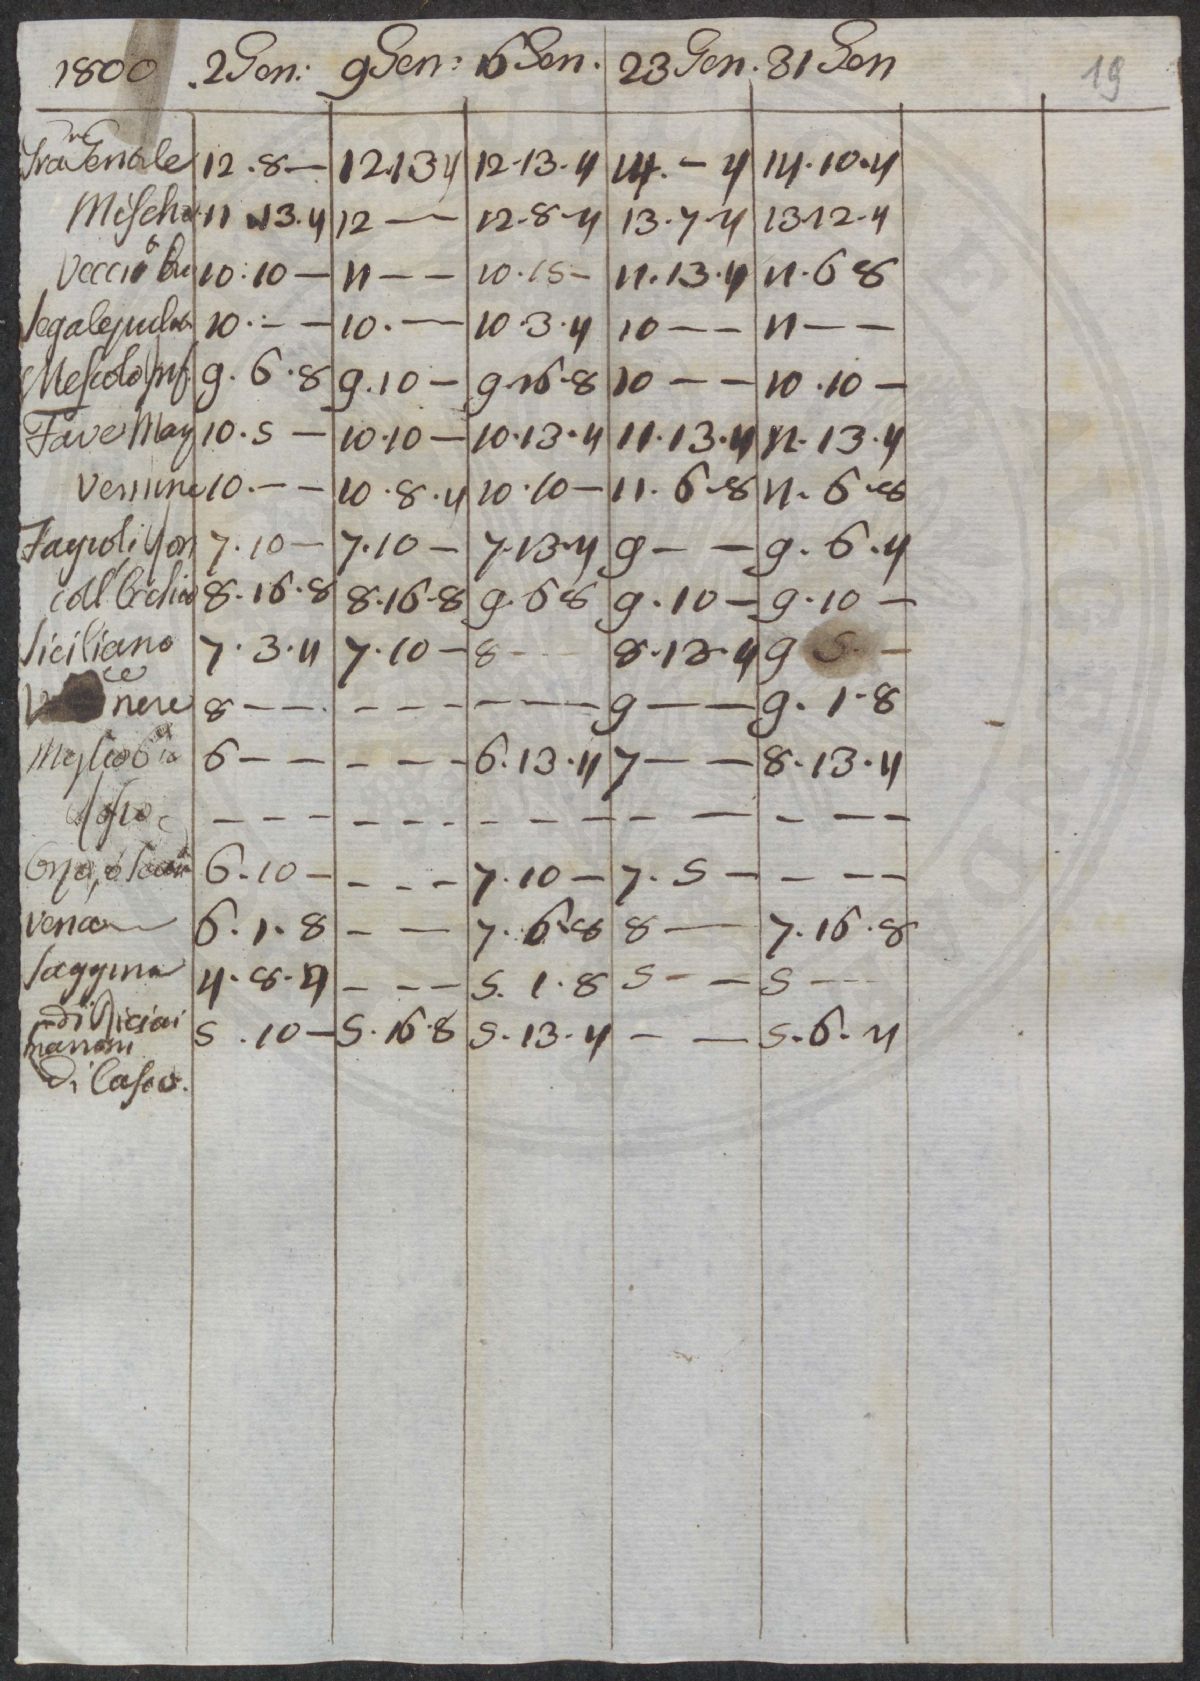 1800 . 2 Gen: 9 Gen: 16 Gen. 23 Gen. 31 Gen 19
Gentile 12 . 8 — 12.13 4 12.13.4 14. – 4 14.10.4
Mischi 11 .13.4 12 — 12.8.4 13.7.4 13.12.4
10.10 — 11 — — 10.15 – 11.13.4 11.6 8
10. – – 10. — 10.3.4 10 — — 11 — —
Mescolo 9.6.8 9.10 – 9.16.8 10 — — 10.10 —
Fave Mag 10.5 — 10.10 — 10.13.4 11.13.4 11.13.4
Vernine 10. – – 10.8.4 10.10 — 11.6.8 11.6.8
7.10 — 7.10 – 7.13.4 9 — — 9.6.4
coll' Ochio 8.16.8 8.16.8 9.6 8 9.10 — 9.10 —
Siciliano 7.3.4 7.10 – 8 – – 8.12.4 9 5. –
nere 8 – – – – – – – – 9 — — 9.1.8
6 – – – – – 6.13.4 7 — — 8.13.4
– – – – – – – – – – — – – –
6.10 – – – – 7.10 — 7.5 – – – –
Vena 6.1.8 – — 7.6.8 8 — 7.16.8
Saggina 4.8.4 – – – 5.1.8 5 – – 5 – –
di 5.10 – 5.16.8 5.13.4 – — 5.6.4
di Caso.